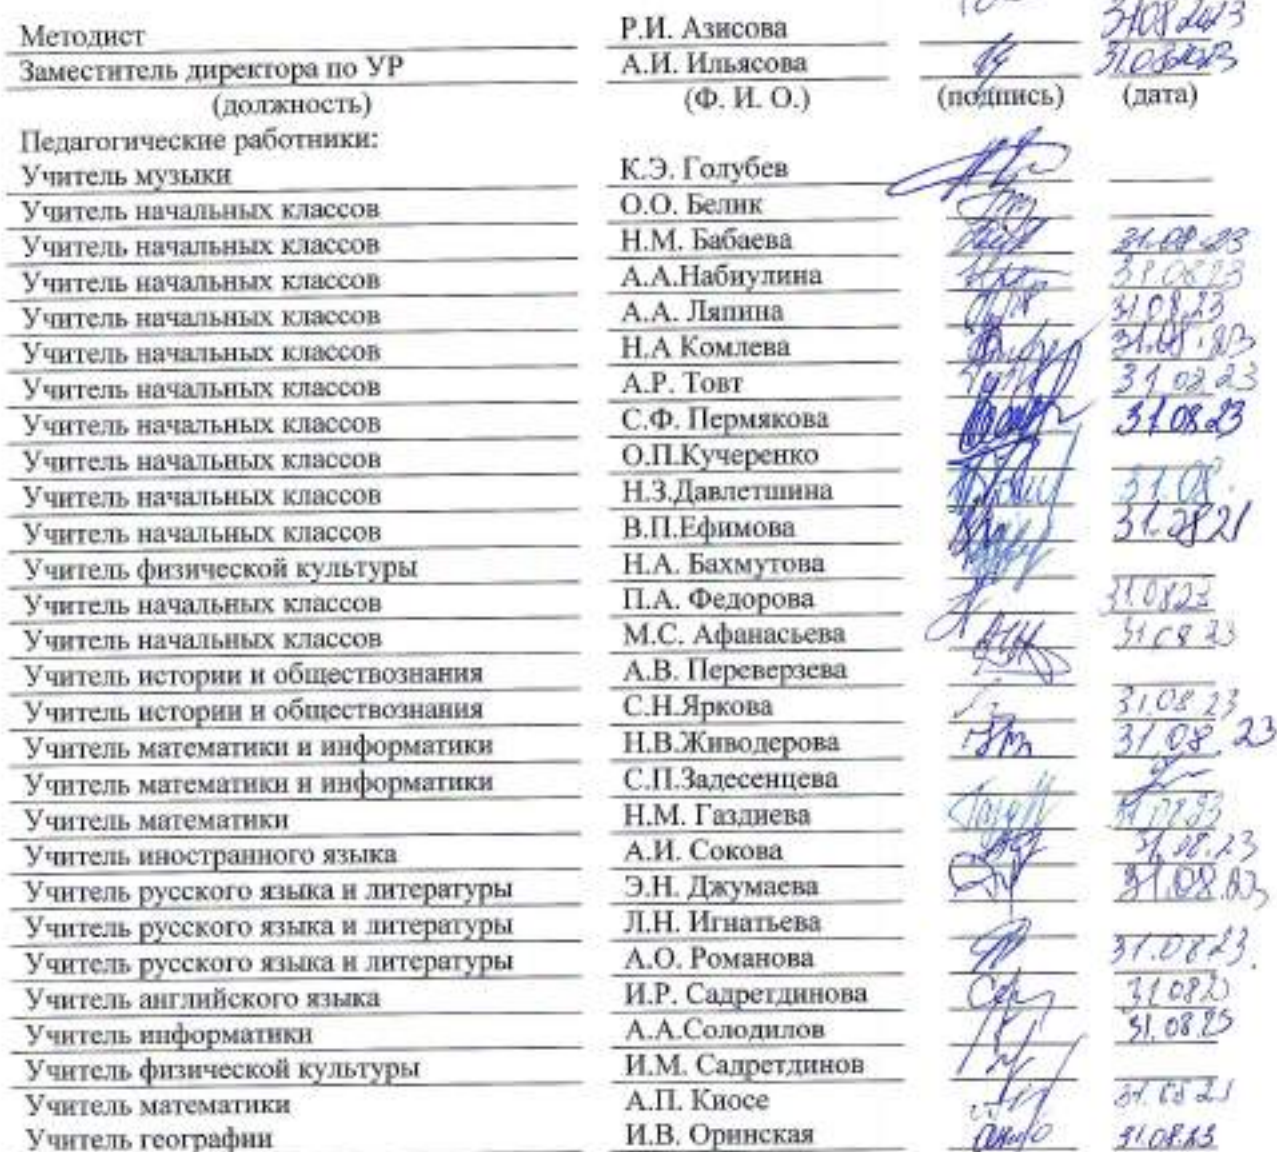 Методист Р.И. Азисова
Заместитель директора по УР А.И. Ильясова
(должность) (Ф. И. О.) (подпись) (дата)
Педагогические работники:
Учитель музыки К.Э. Голубев
Учитель начальных классов О.О. Белик
Учитель начальных классов Н.М. Бабаева 31.08.23
Учитель начальных классов А.А.Набиулина 31.0823
Учитель начальных классов А.А. Ляпина 31.08.23
Учитель начальных классов Н.А Комлева 31.08.23
Учитель начальных классов А.Р. Товт 31 08.23
Учитель начальных классов С.Ф. Пермякова 31.08.23
Учитель начальных классов О.П.Кучеренко
Учитель начальных классов Н.З.Давлетшина 31.08.
Учитель начальных классов В.П.Ефимова
Учитель физической культуры Н.А. Бахмутова
Учитель начальных классов П.А. Федорова 31.0823
Учитель начальных классов М.С. Афанасьева 31 08 23
Учитель истории и обществознания А.В. Переверзева
Учитель истории и обществознания С.Н.Яркова 31.08.23
Учитель математики и информатики Н.В.Живодерова 31 08. 23
Учитель математики и информатики С.П.Задесенцева
Учитель математики Н.М. Газдиева 31.0823
Учитель иностранного языка А.И. Сокова 31.08.23
Учитель русского языка и литературы Э.Н. Джумаева 31.08.23
Учитель русского языка и литературы Л.Н. Игнатьева
Учитель русского языка и литературы А.О. Романова 31.0823.
Учитель английского языка И.Р. Садретдинова
Учитель информатики А.А.Солодилов 31.08.23
Учитель физической культуры И.М. Садретдинов
Учитель математики А.П. Киосе
Учитель географии И.В. Оринская 31.08.23